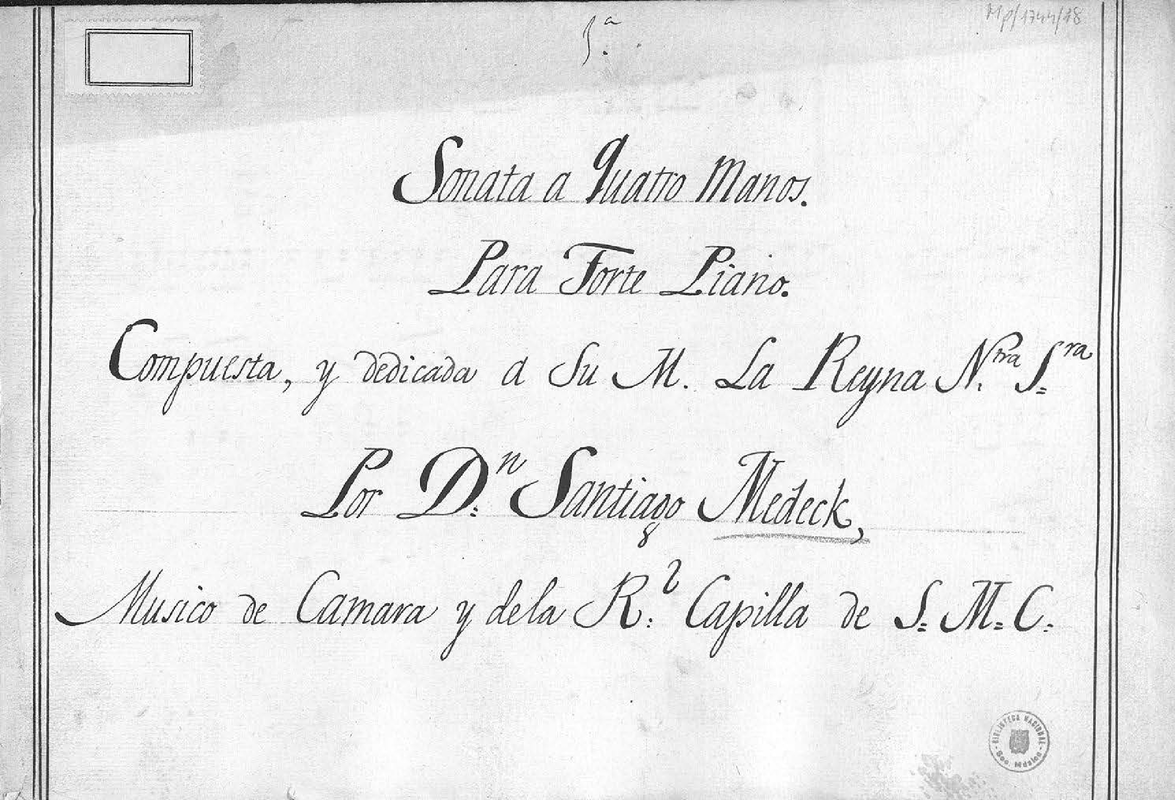 5.ª
Mp/1744/18
Sonata a quatro Manos.
Para Forte Piano.
Compuesta, y dedicada a Su M. La Reyna N.tra S.ra
Por D.n Santiago Medeck,
Musico de Camara y dela R.l Capilla de S. M. C.
BIBLIOTECA NACIONAL
Sec. Música